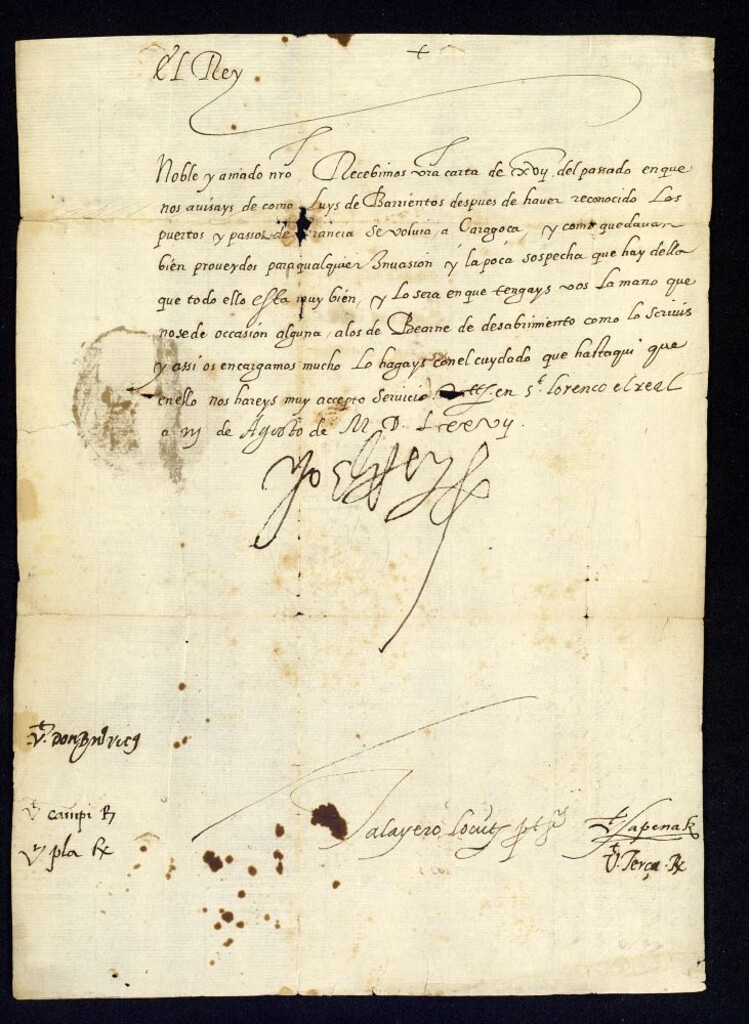 +
El Rey
Noble y amado nro, Recebimos vra carta de xvij del passado en que
nos auisays de como Luys de Barrientos despues de hauer reconocido Los
puertos y passos de francia se voluia, a Caragoca, y como quedauan
bien proueydos para qualquier Inuasion y la poca sospecha que hay della
que todo ello esta muy bien, y Lo sera en que tengays vos La mano que
no se de occasion alguna, a los de Bearne de desabrimiento como lo scriuis
y assi os encargamos mucho Lo hagays con el cuydado que hasta qui que
en ello nos hareys muy accepto seruicio en st Lorenco el real
a iij de Agosto de M D Lxxvij.
Yo el Rey
Vt
Vt campi R
Vt pla Rx
Talayero Locuts pths
Vt Sapena R
Vt Terça Rx